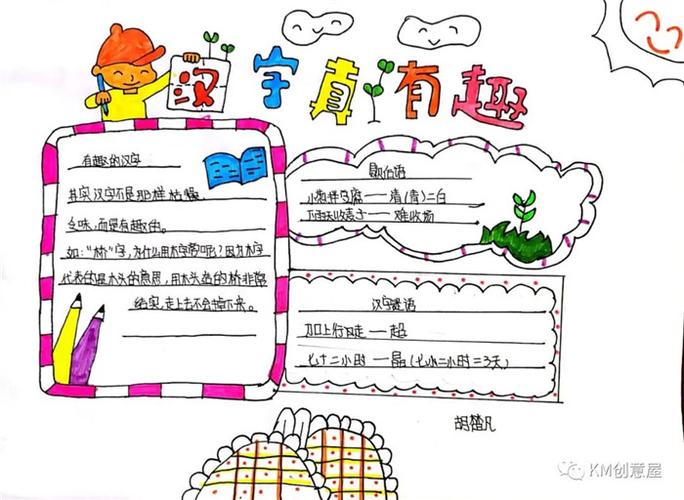 汉字真有趣
有趣的汉字
其实汉字不是那样枯燥
乏味,而是有趣的。
如:“桥”字,为什么用木字旁呢?因为木字
代表的是木头的意思,用木头造的桥非常
结实,走上去不会掉下来。
歇后语
小葱拌豆腐——清(青)二白
下雨天收麦子——难收场
汉字谜语
刀口上行走——超
七十二小时——晶(七十二小时=3天)
胡楚凡
KM创意屋